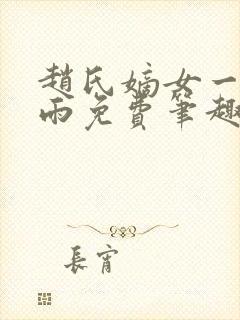 趙氏嫡女一
雨免費筆趣
長宵